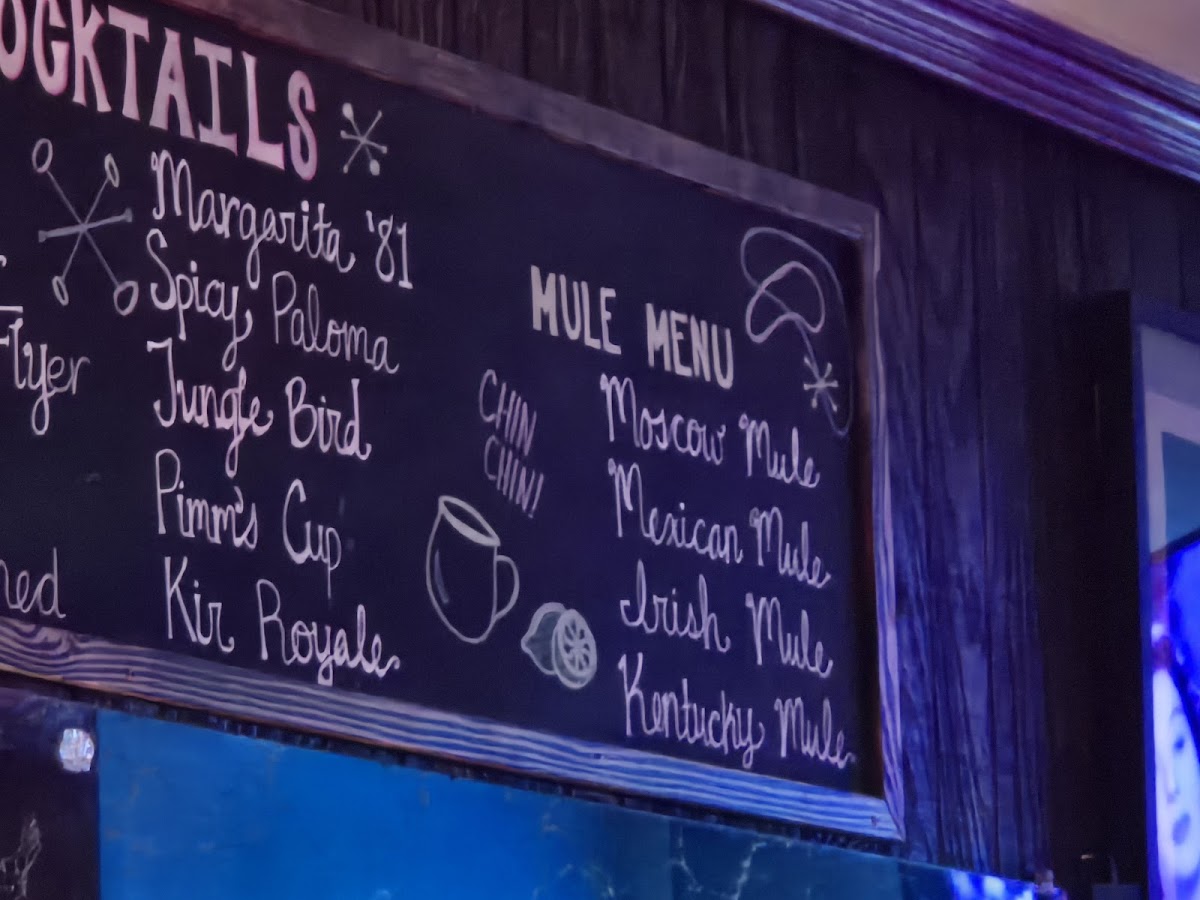 OCKTAILS
Margarita '81
Spicy Paloma
Flyer
Jungle Bird
Pimm's Cup
ned
Kir Royale
MULE MENU
CHIN
CHIN!
Moscow Mule
Mexican Mule
Irish Mule
Kentucky Mule